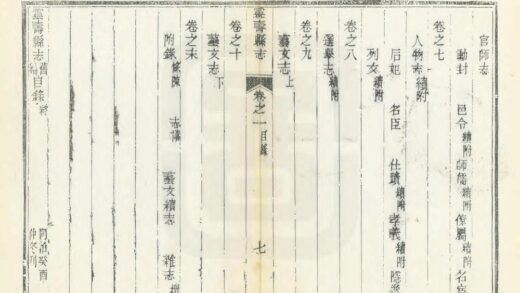 官師志
勳封 邑令續附 師儒續附 僚屬續附 名宦
卷之七
人物志續附
后妃 名臣 仕蹟續附 孝義續附 隱逸
列女續附
卷之八
選舉志續附
卷之九
藝文志上
靈壽縣志 卷之一目錄 七
卷之十
藝文志下
卷之末
附錄 條陳 志議 藝文續志 雜志
靈壽縣志
同治癸酉